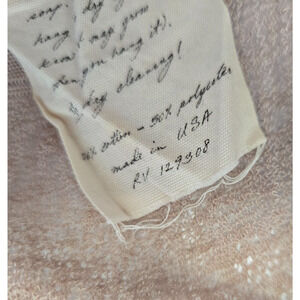 soap, dry
hang
may grow
when you hang it).
dry cleaning!
cotton - 50% polyester
made in USA
RV 129308